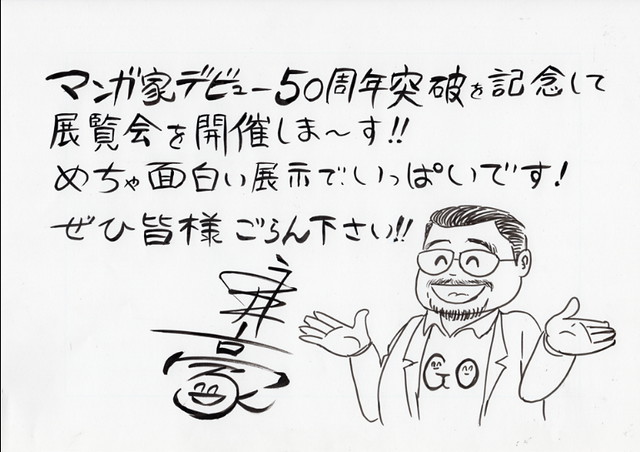 マンガ家デビュー50周年突破を記念して
展覧会を開催しま〜す!!
めちゃ面白い展示で、いっぱいです!
ぜひ皆様ごらん下さい!!
GO